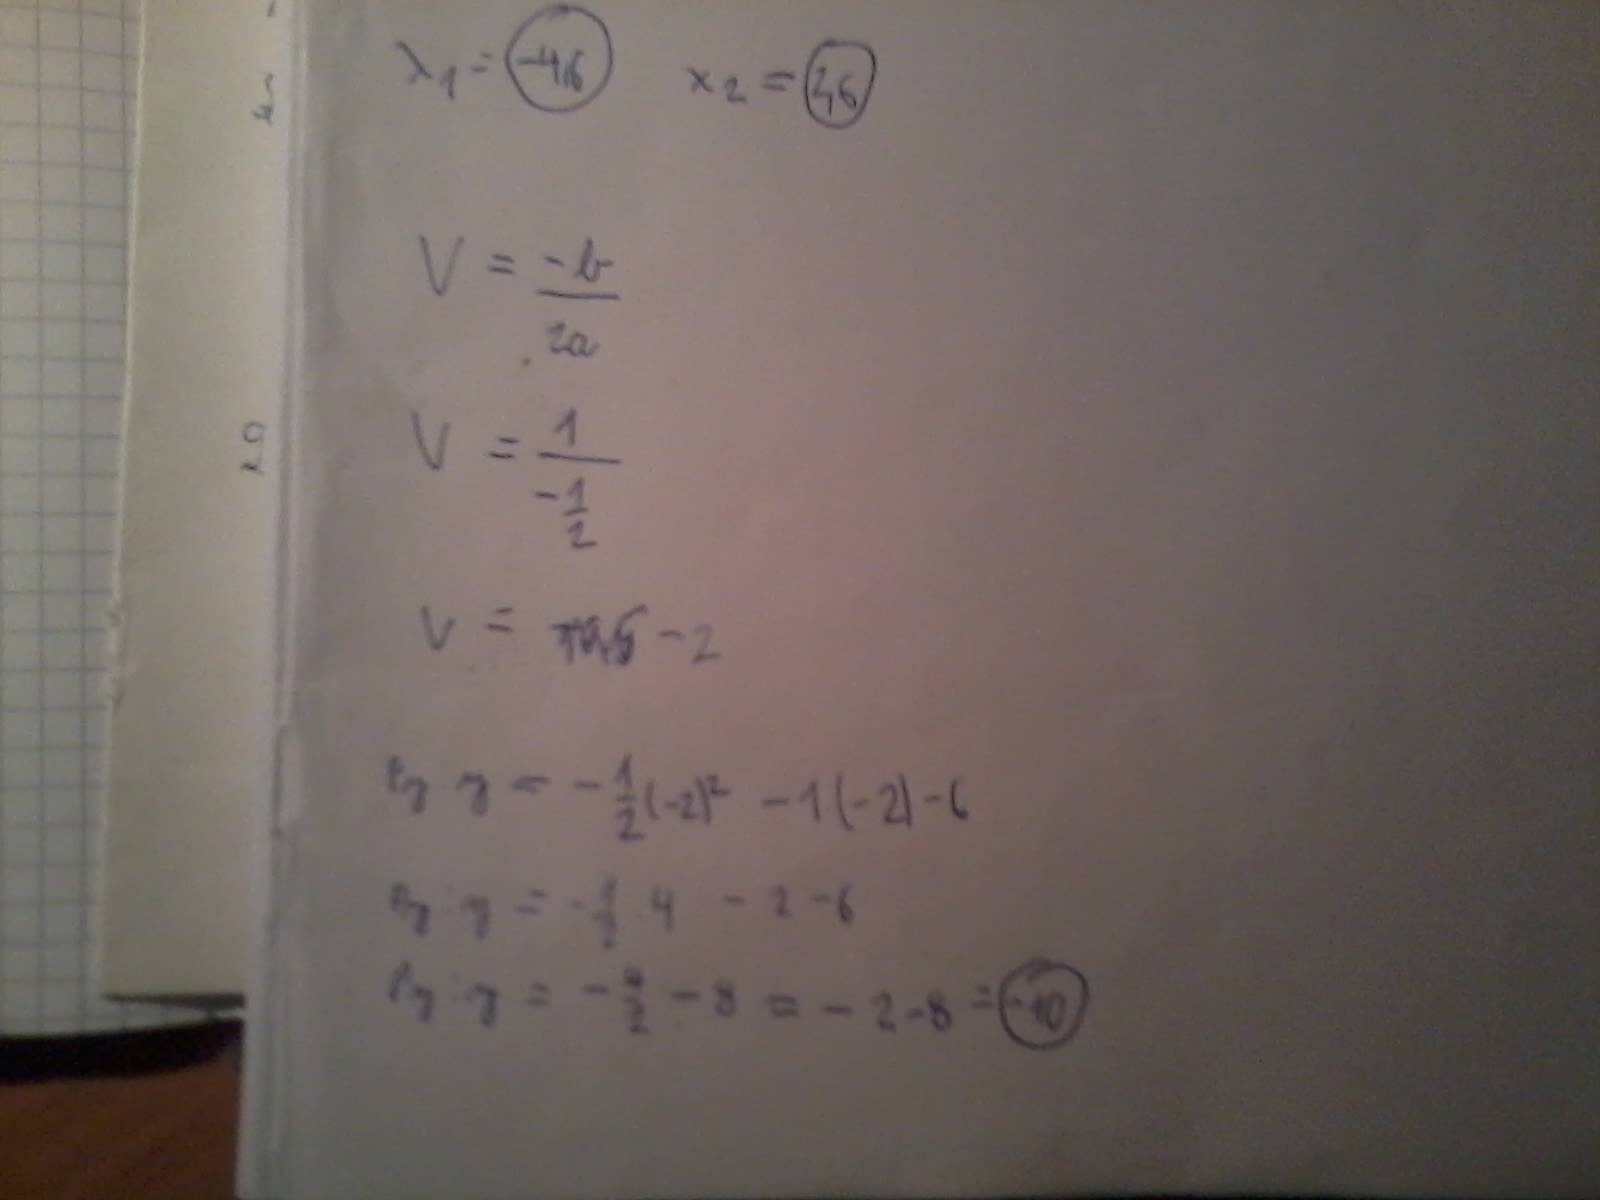 x₁ = -4,6    x₂ = 2,6
V = -b/2a
V = 1/-1/2
V = -2
y = -1/2(-2)² - 1(-2) - 6
y = -1/2 · 4 - 2 - 6
y = -4/2 - 8 = -2 - 8 = -10